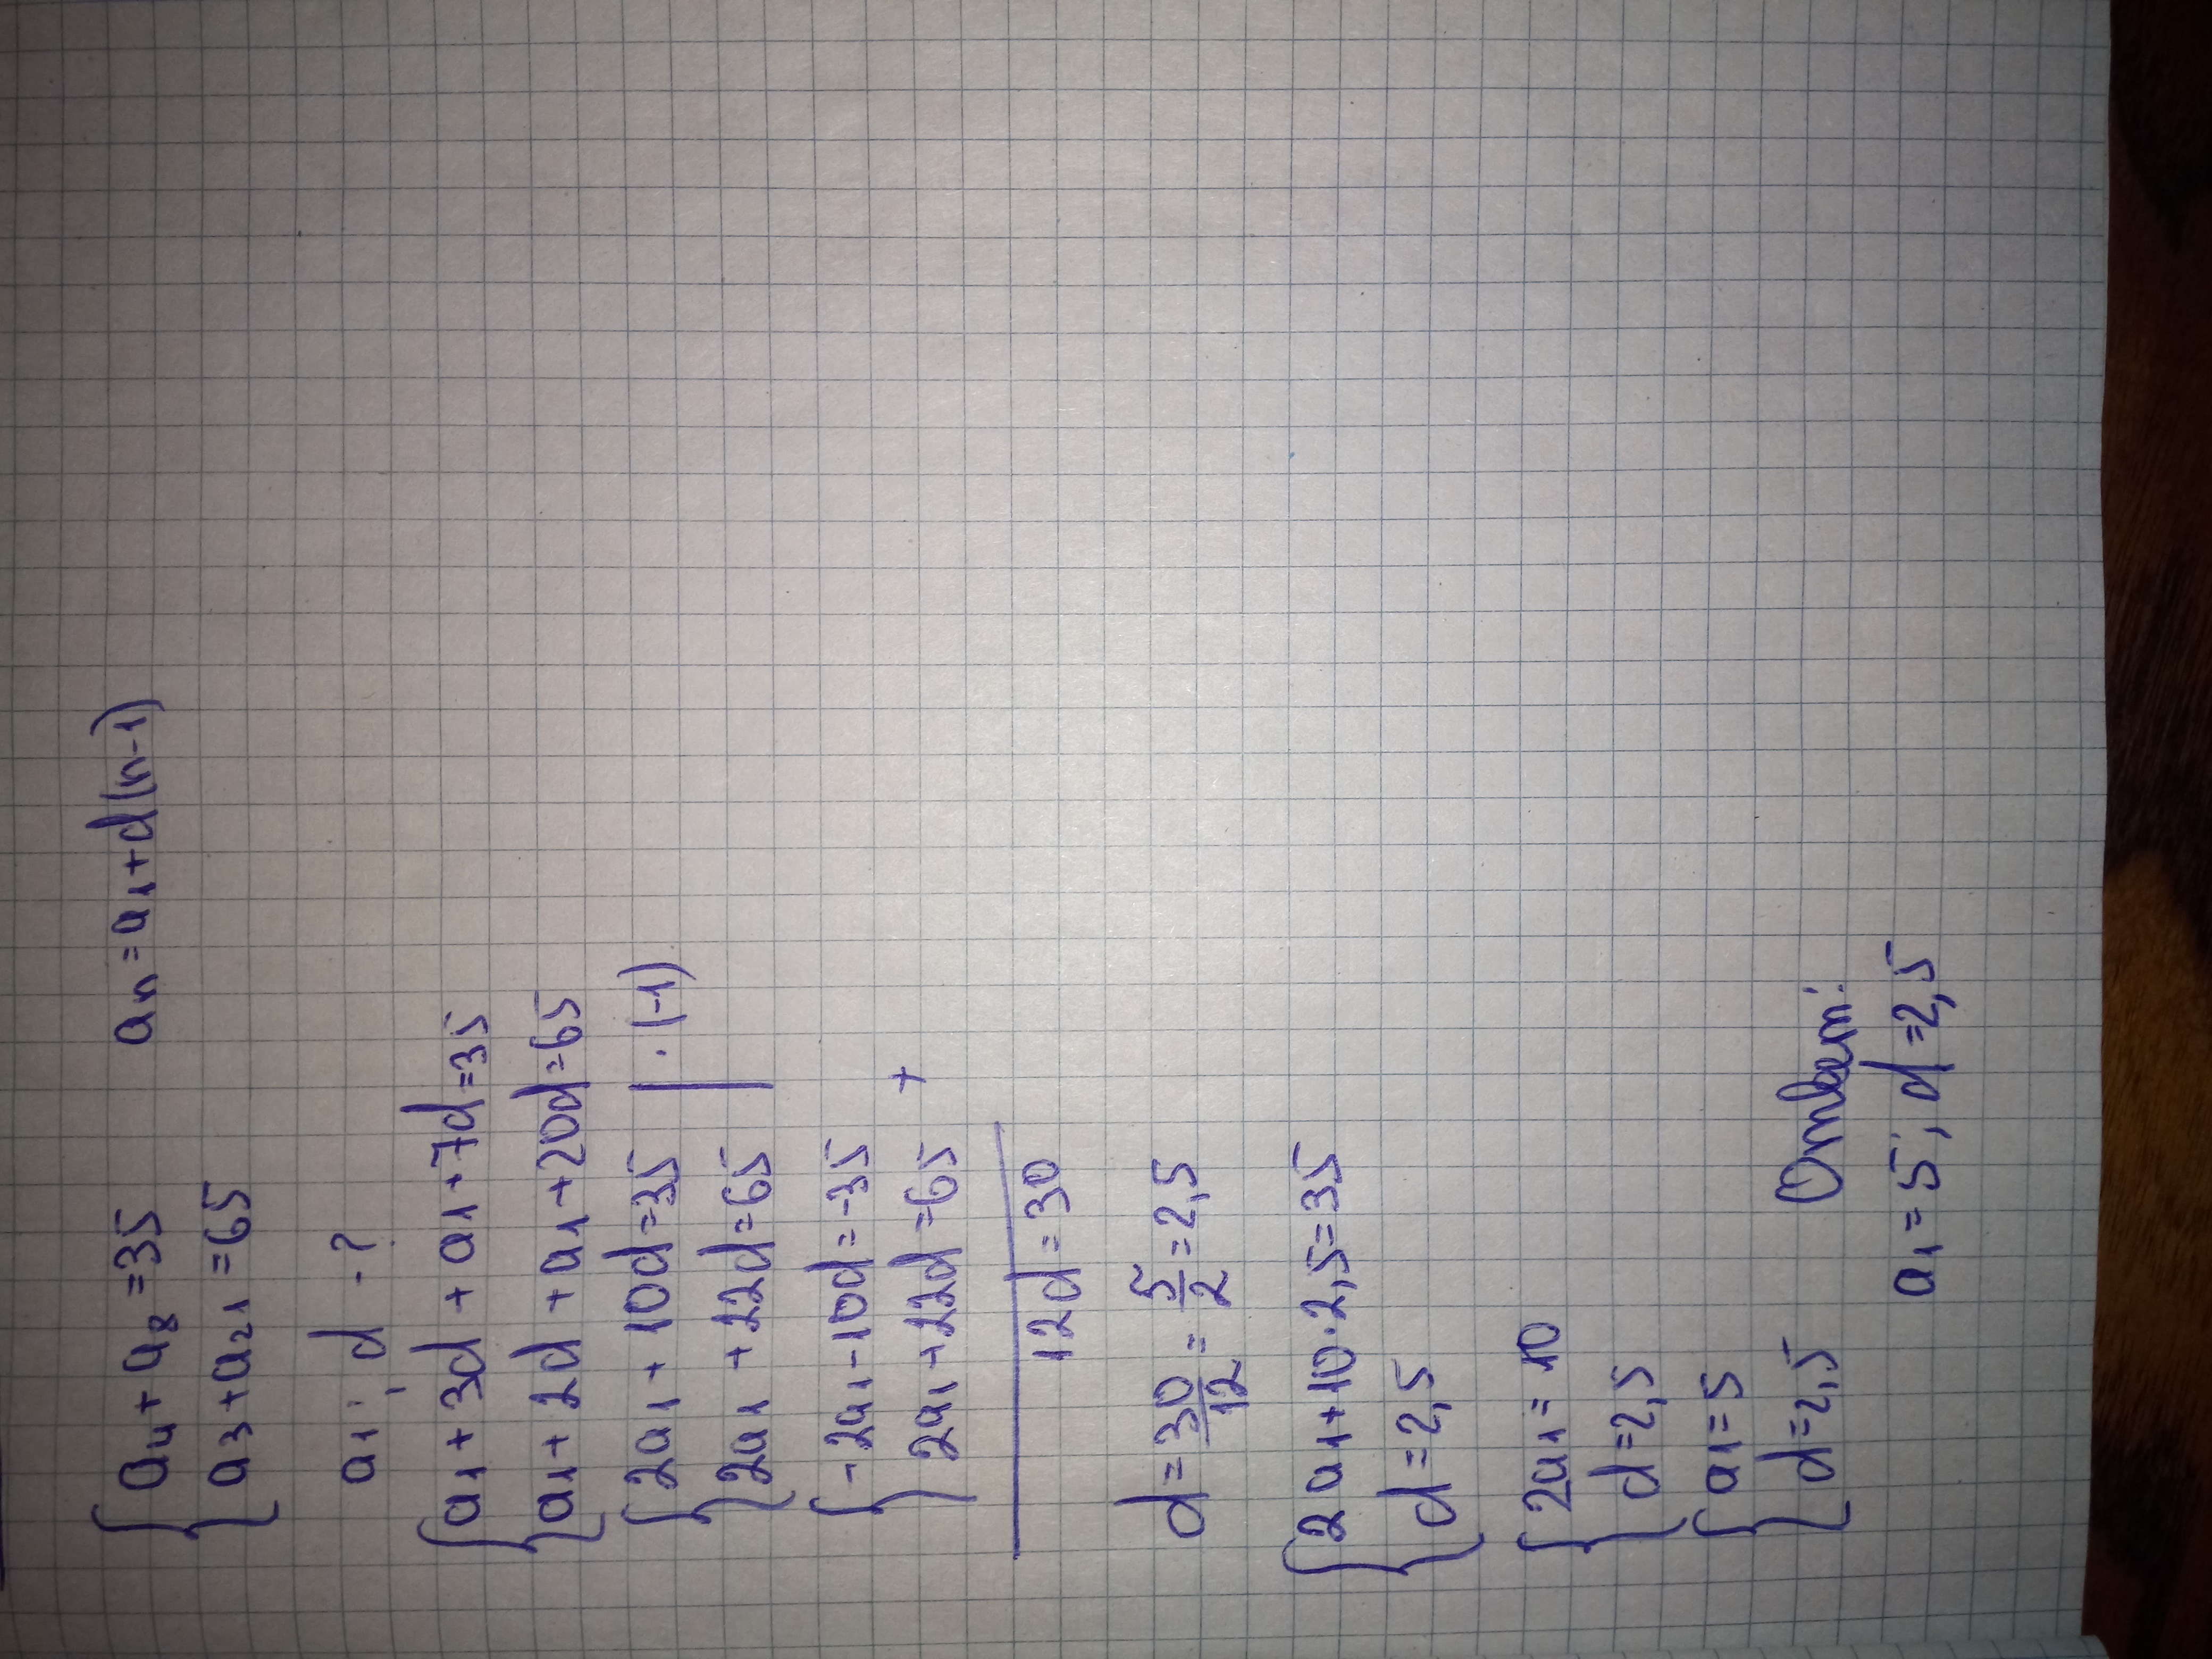 {a₄+a₈=35 aₙ=a₁+d(n-1)
{a₃+a₂₁=65
a₁; d - ?
{a₁+3d+a₁+7d=35
{a₁+2d+a₁+20d=65
{2a₁+10d=35 | ·(-1)
{2a₁+22d=65 |
{-2a₁-10d=-35
{2a₁+22d=65 +
12d=30
d=30/12=5/2=2,5
{2a₁+10·2,5=35
{d=2,5
{2a₁=10
{d=2,5
{a₁=5
{d=2,5
Ответ:
a₁=5; d=2,5